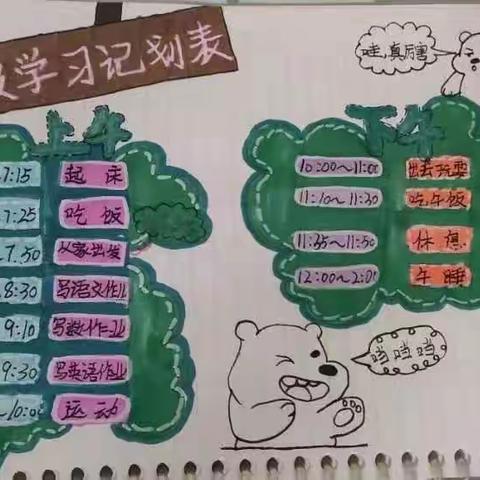 学习记划表
哇,真厉害
上午
7:15 起床
7:25 吃饭
7.30 从家出发
8:30 写语文作业
9:10 写数作业
9:30 写英语作业
~10:00 运动
下午
10:00~11:00 出去玩耍
11:10~11:30 吃午饭
11:35~11:50 休息
12:00~2:00 午睡
当当当